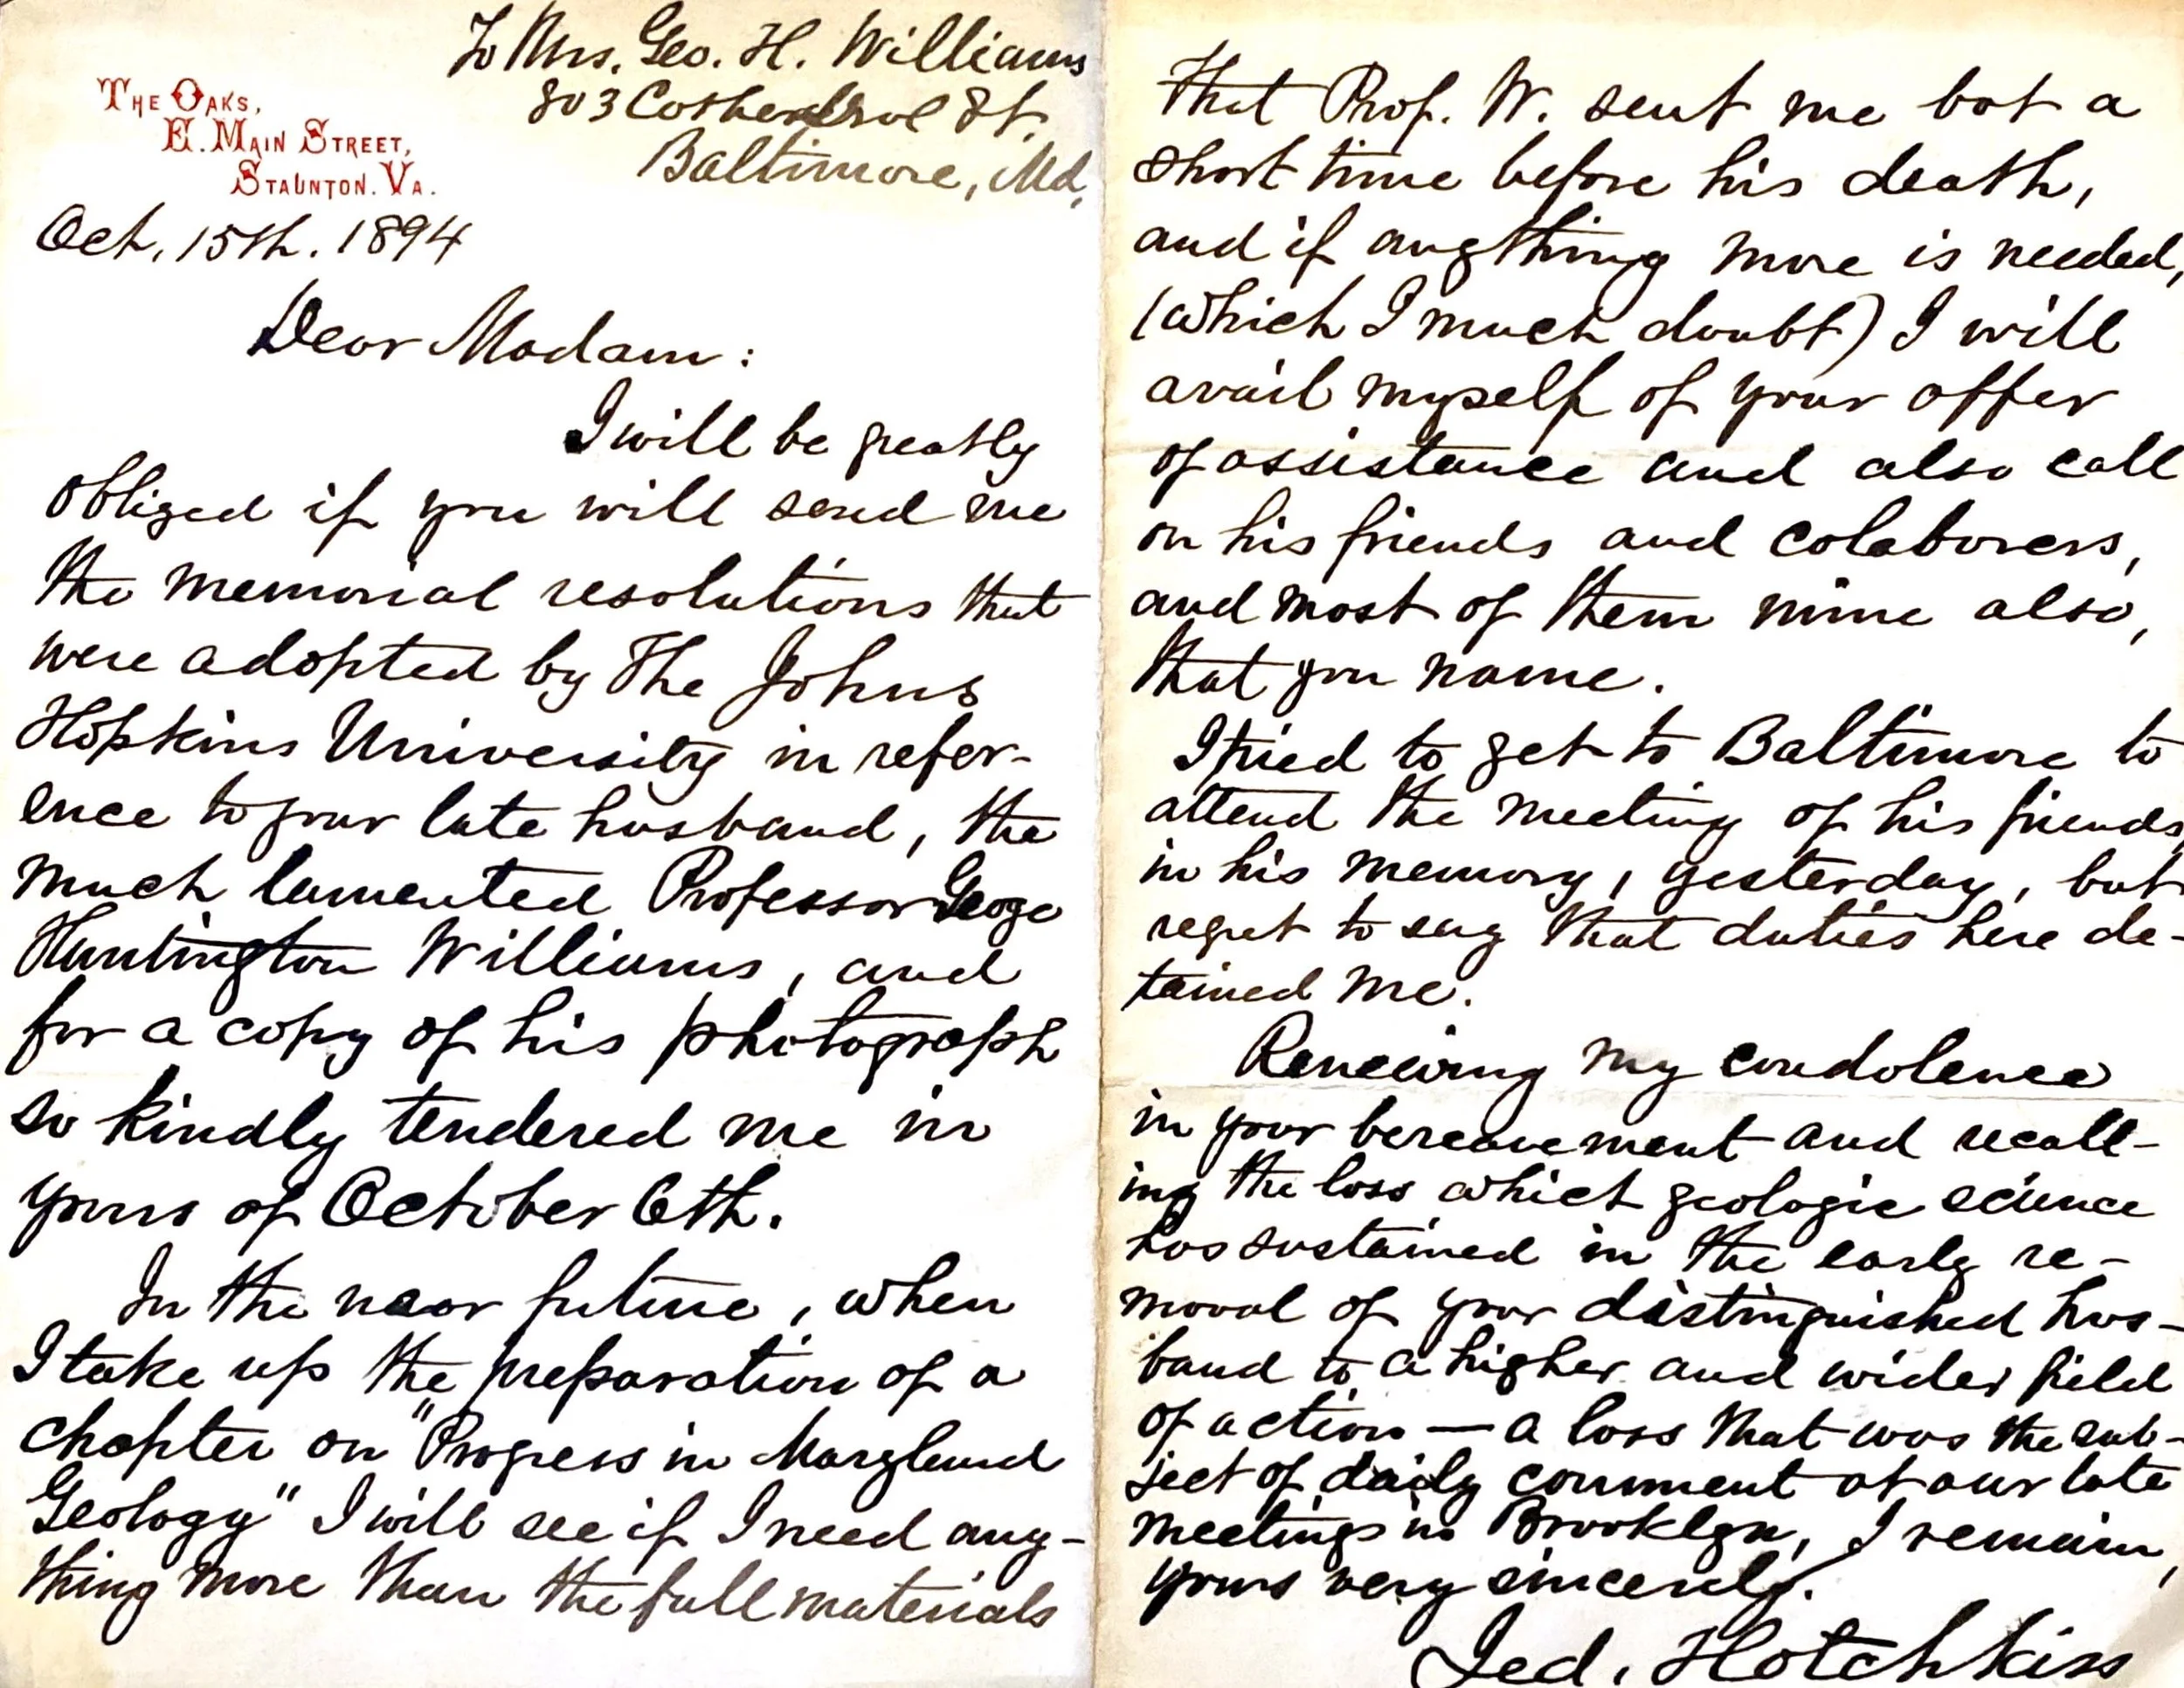 To Mrs. Geo. H. Williams
803 Cathedral St.
Baltimore, Md.
THE OAKS,
E. MAIN STREET,
STAUNTON. VA.
Oct. 15th. 1894
Dear Madam:
I will be greatly
obliged if you will send me
the memorial resolutions that
were adopted by The Johns
Hopkins University in refer-
ence to your late husband, the
much lamented Professor George
Huntington Williams, and
for a copy of his photograph
so kindly tendered me in
yours of October 6th.
In the near future, when
I take up the preparation of a
chapter on "Progress in Maryland
Geology" I will see if I need any-
thing more than the full materials
that Prof. W. sent me but a
short time before his death,
and if anything more is needed,
(which I much doubt) I will
avail myself of your offer
of assistance and also call
on his friends and colaborers,
and most of them mine also,
that you name.
I tried to get to Baltimore to
attend the meeting of his friends
in his memory, yesterday, but
regret to say that duties here de-
tained me.
Renewing my condolence
in your bereavement and recall-
ing the loss which geologic science
has sustained in the early re-
moval of your distinguished hus-
band to a higher and wider field
of action — a loss that was the sub-
ject of daily comment at our late
meetings in Brooklyn, I remain,
yours very sincerely.
Jed. Hotchkiss